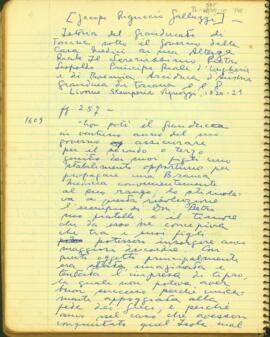 [Jacopo Riguccio Galluzzi]
Istoria del Granducato di
Toscana sotto il Governo della
Casa Medici a Sua Altezza
Reale Il Serenissimo Pietro
Leopoldo Principe Reale d'Ungheria
e di Boemia Arciduca d'Austria
Granduca di Toscana
Livorno Stamperia Vignozzi, 1820-21
pg. 257 -
1609
- Non potè il granduca
in ventuno anni del suo
governo assicurare
per il secondo e terzo
genito dei suoi figli uno
stabilimento opportuno per
propagare una Branca
Medicea convenientemente
al suo rango; lo
a questa risoluzione
l'esempio di Don Pietro
suo fratello e il timore
che da esso ne
che tra i suoi figli
potessero insorgere
maggiori discordie. Con
questo oggetto principalmente
era stata immaginata e
tentata l'impresa di Cipro,
la quale non poteva aver
buon successo perché
mente appoggiata alla
fede dei Greci, e perché
anco nel caso che avessero
conquistato quel Isola mal